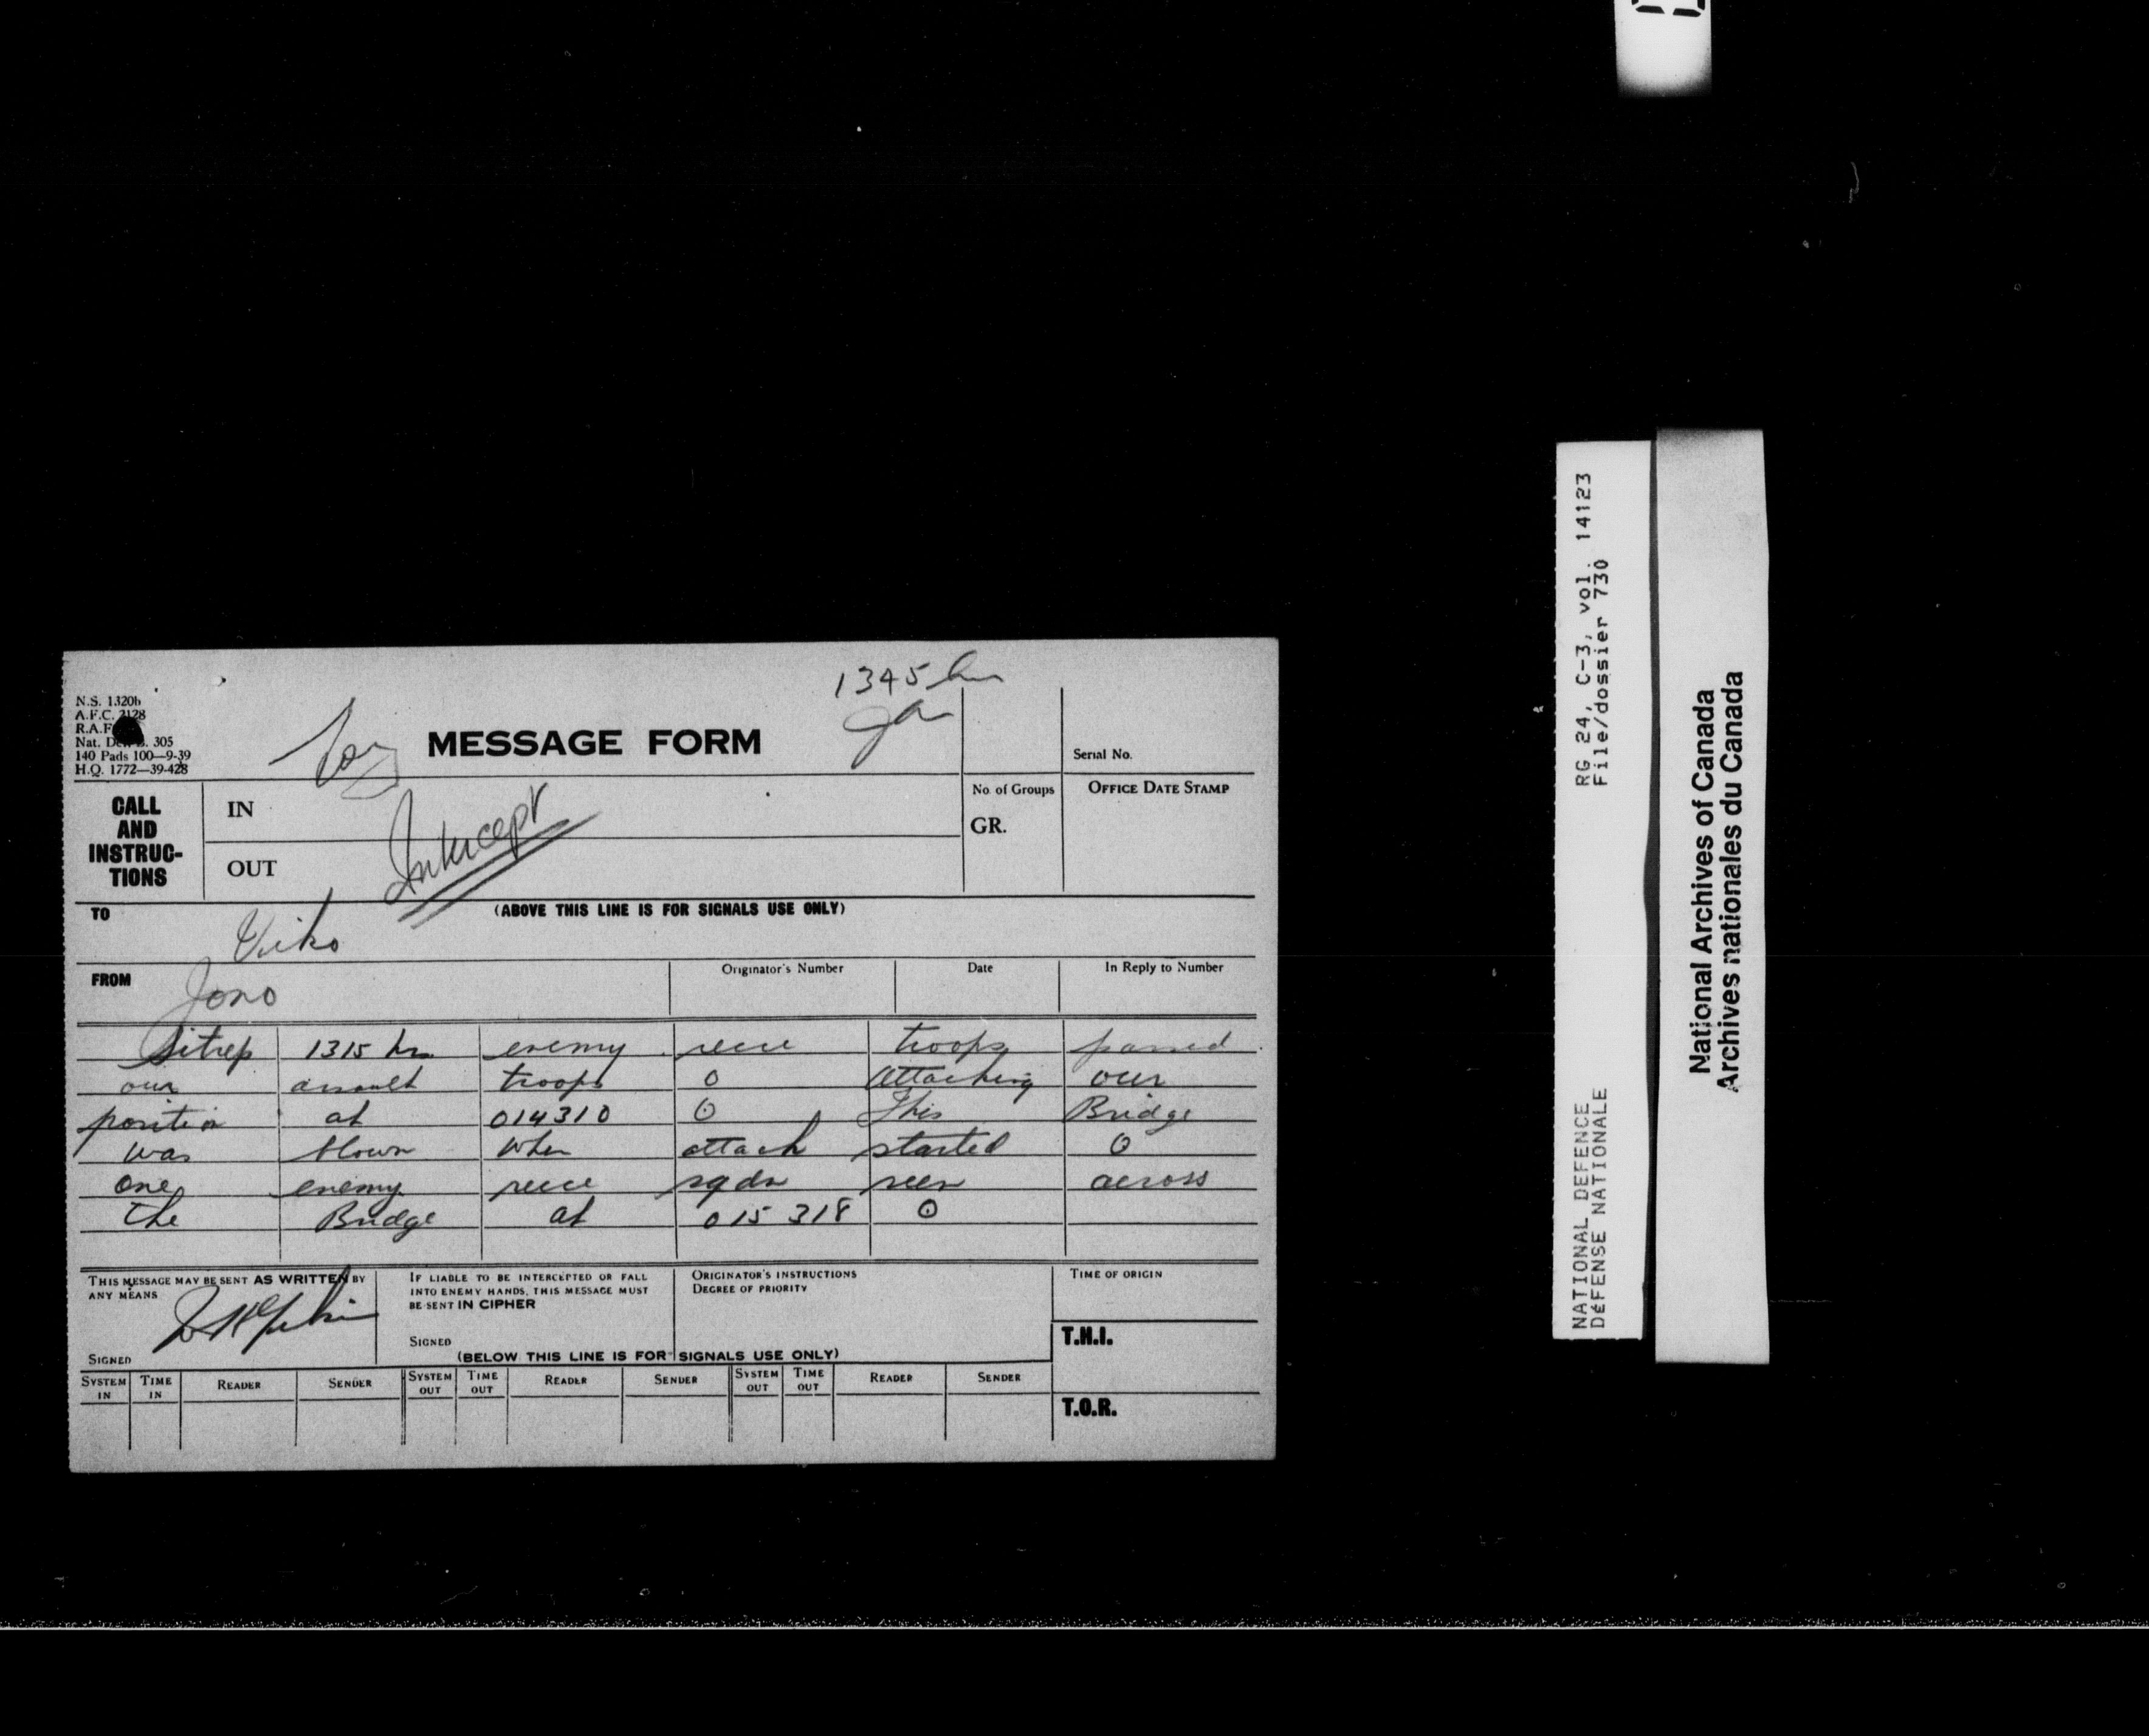 1345 hr
N.S. 1320b
A.F.C. 2128
R.A.F.
Nat. Def. B. 305
140 Pads 100—9-39
H.Q. 1772—39-428
Log
MESSAGE FORM
Serial No.
CALL AND INSTRUC-TIONS
IN
OUT
Intercept
No. of Groups
GR.
OFFICE DATE STAMP
(ABOVE THIS LINE IS FOR SIGNALS USE ONLY)
TO
FROM
Jono
Originator's Number
Date
In Reply to Number
Sitrep 1315 hrs enemy recce troops passed
our assault troops o Attacking our
position at 014310 O This Bridge
was blown when attack started O
One enemy recce sqdn seen across
the Bridge at 015 318 O
THIS MESSAGE MAY BE SENT AS WRITTEN BY ANY MEANS
SIGNED
IF LIABLE TO BE INTERCEPTED OR FALL INTO ENEMY HANDS, THIS MESSAGE MUST BE SENT IN CIPHER
SIGNED
ORIGINATOR'S INSTRUCTIONS
DEGREE OF PRIORITY
TIME OF ORIGIN
T.H.I.
(BELOW THIS LINE IS FOR SIGNALS USE ONLY)
SYSTEM IN TIME IN READER SENDER SYSTEM OUT TIME OUT READER SENDER SYSTEM OUT TIME OUT READER SENDER
T.O.R.
RG 24, C-3, vol. 14123
File/dossier 730
NATIONAL DEFENCE
DéFENSE NATIONALE
National Archives of Canada
Archives nationales du Canada